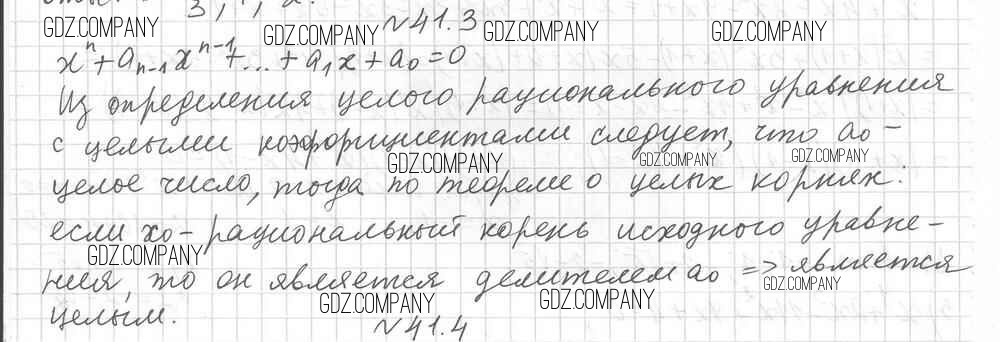 №41.3
xⁿ + aₙ₋₁xⁿ⁻¹ + ... + a₁x + a₀ = 0
Из определения целого рационального уравнения
с целыми коэффициентами следует, что a₀ -
целое число, тогда по теореме о целых корнях:
если x₀ - рациональный корень исходного уравне-
ния, то он является делителем a₀ => является
целым.
№41.4
GDZ.COMPANY
GDZ.COMPANY
GDZ.COMPANY
GDZ.COMPANY
GDZ.COMPANY
GDZ.COMPANY
GDZ.COMPANY
GDZ.COMPANY
GDZ.COMPANY
GDZ.COMPANY
GDZ.COMPANY